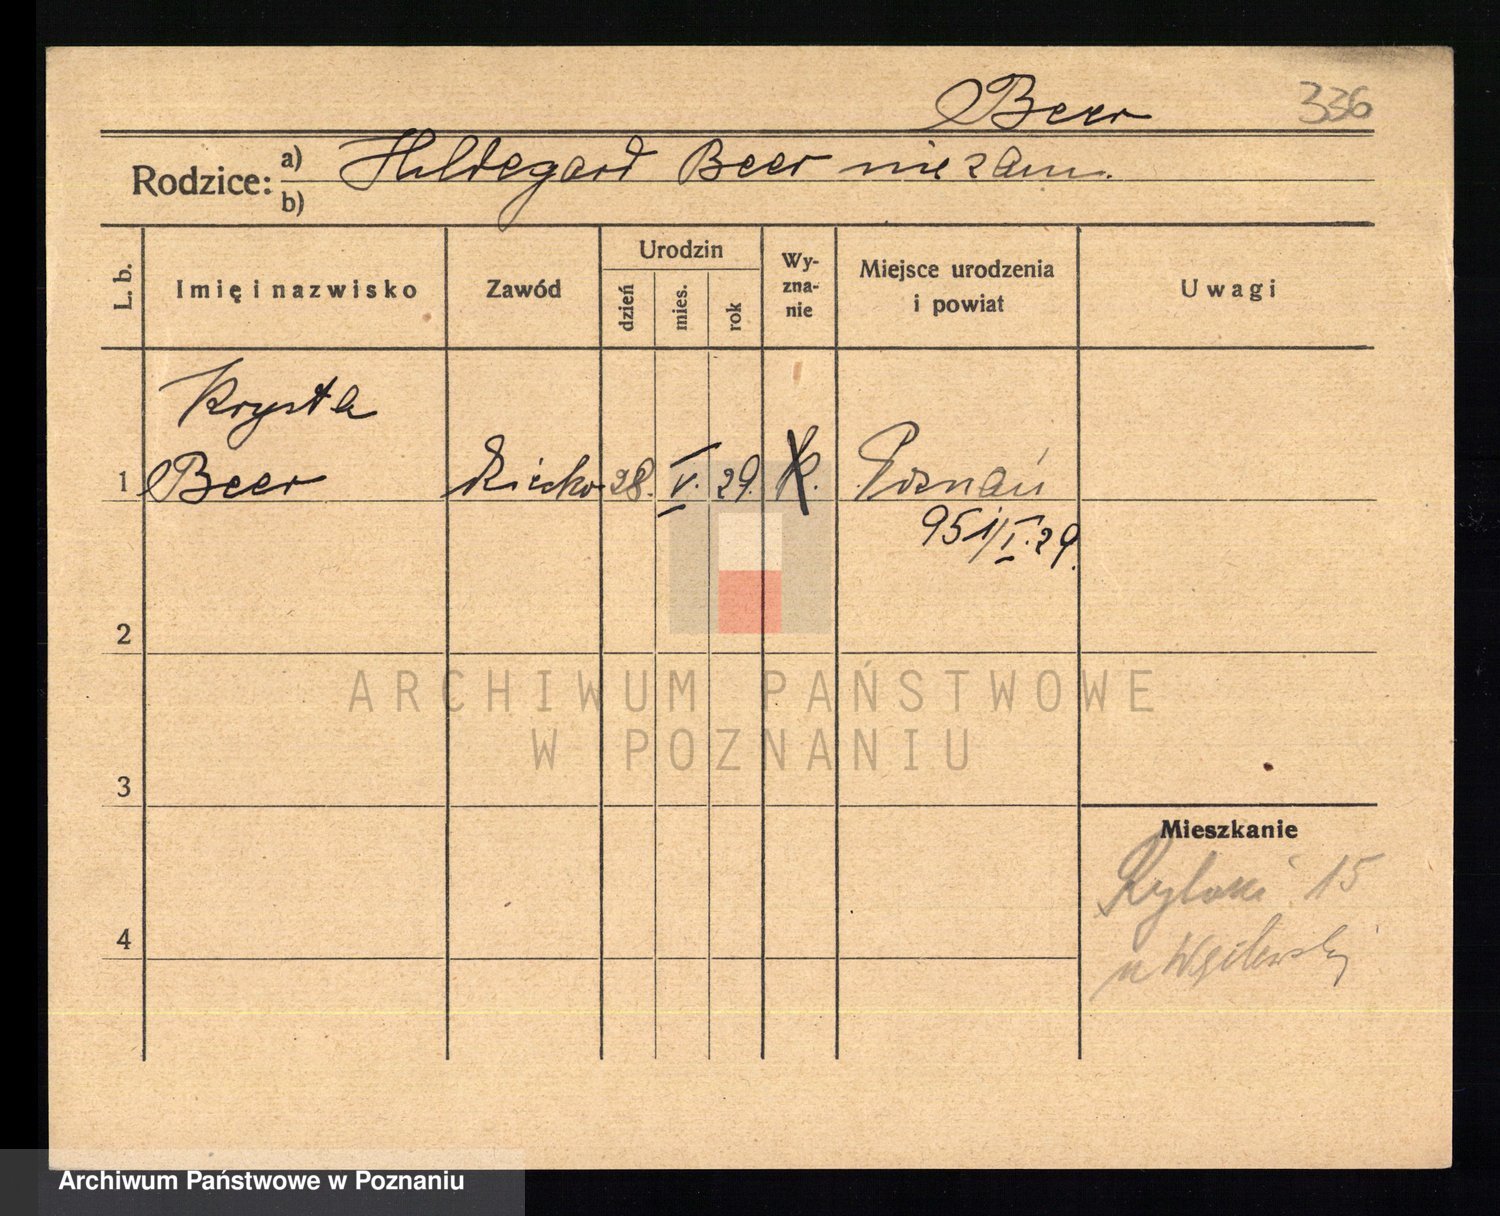 Beer 336
Rodzice: a) Hildegard Beer niezam.
b)
L. b. Imię i nazwisko Zawód Urodzin dzień mies. rok Wyznanie Miejsce urodzenia i powiat Uwagi
Krysta
1 Beer Dziecko 28. V. 29. k. Poznań
951/I.29.
2
ARCHIWUM PAŃSTWOWE
W POZNANIU
3
Mieszkanie
15
4
u
Archiwum Państwowe w Poznaniu